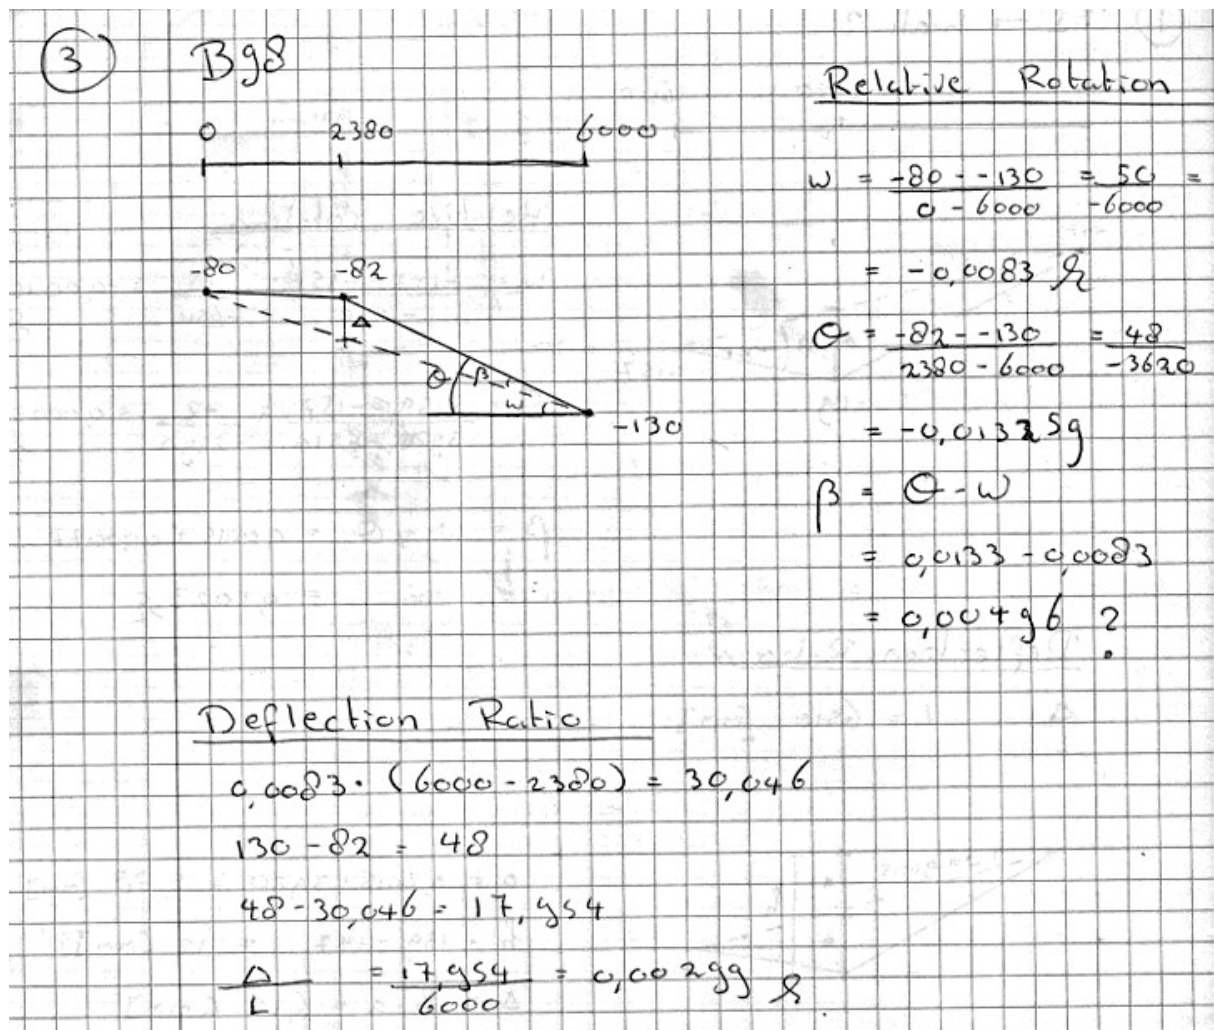 3 Bg8
0 2380 6000
-80 -82
Δ
θ β
ω
-130
Relative Rotation
ω = -80 - -130 / 0 - 6000 = 50 / -6000 =
= -0,0083
θ = -82 - -130 / 2380 - 6000 = 48 / -3620
= -0,01325g
β = θ - ω
= 0,0133 - 0,0083
= 0,00496 ?
Deflection Ratio
0,0083 · (6000 - 2380) = 30,046
130 - 82 = 48
48 - 30,046 = 17,954
Δ / L = 17,954 / 6000 = 0,00299